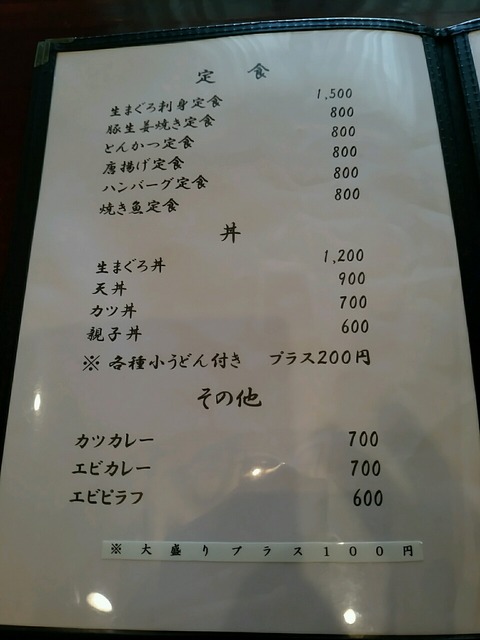 定 食
生まぐろ刺身定食 1,500
豚生姜焼き定食 800
とんかつ定食 800
唐揚げ定食 800
ハンバーグ定食 800
焼き魚定食 800
丼
生まぐろ丼 1,200
天丼 900
カツ丼 700
親子丼 600
※ 各種小うどん付き プラス200円
その他
カツカレー 700
エビカレー 700
エビピラフ 600
※ 大盛りプラス100円